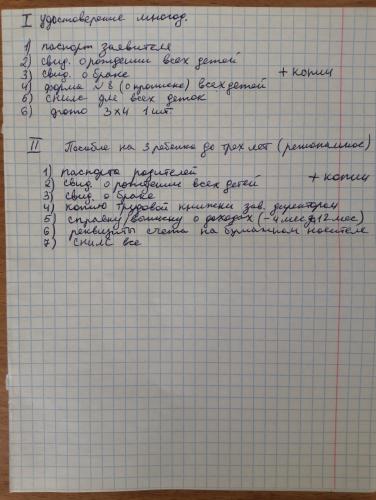 I Удостоверение многод.
1) паспорт заявителя
2) свид. о рождении всех детей
3) свид. о браке + копии
4) форма №8 (о прописке) всех детей
5) снилс для всех деток
6) фото 3х4 1 шт.
II Пособие на 3 ребенка до трех лет (региональное)
1) паспорта родителей + копии
2) свид. о рождении всех детей
3) свид. о браке
4) копию трудовой книжки зав. директором
5) справку/выписку о доходах (-4 мес 12 мес)
6) реквизиты счета на бумажном носителе
7) снилс все